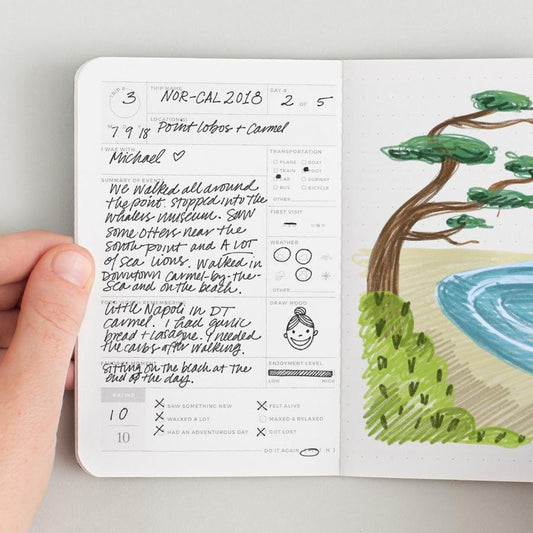 TRIP # 3
TRIP NAME NOR-CAL 2018
DAY # 2 OF 5
LOCATION(S)
7 9 18 Point Lobos + Carmel
I WAS WITH
Michael ♡
TRANSPORTATION
PLANE BOAT
TRAIN FOOT
CAR SUBWAY
BUS BICYCLE
OTHER
SUMMARY OF EVENTS
We walked all around
the point. Stopped into the
whalers museum. Saw
some otters near the
south point and A LOT
of sea lions. Walked in
Downtown Carmel-by-the-
Sea and on the beach.
FIRST VISIT
WEATHER
OTHER
Little Napoli in DT
Carmel. I had garlic
bread + lasagne. I needed
the carbs after walking.
DRAW MOOD
Sitting on the beach at the
end of the day.
ENJOYMENT LEVEL
LOW HIGH
RATING
10
10
SAW SOMETHING NEW
WALKED A LOT
HAD AN ADVENTUROUS DAY
FELT ALIVE
MAXED & RELAXED
GOT LOST
DO IT AGAIN